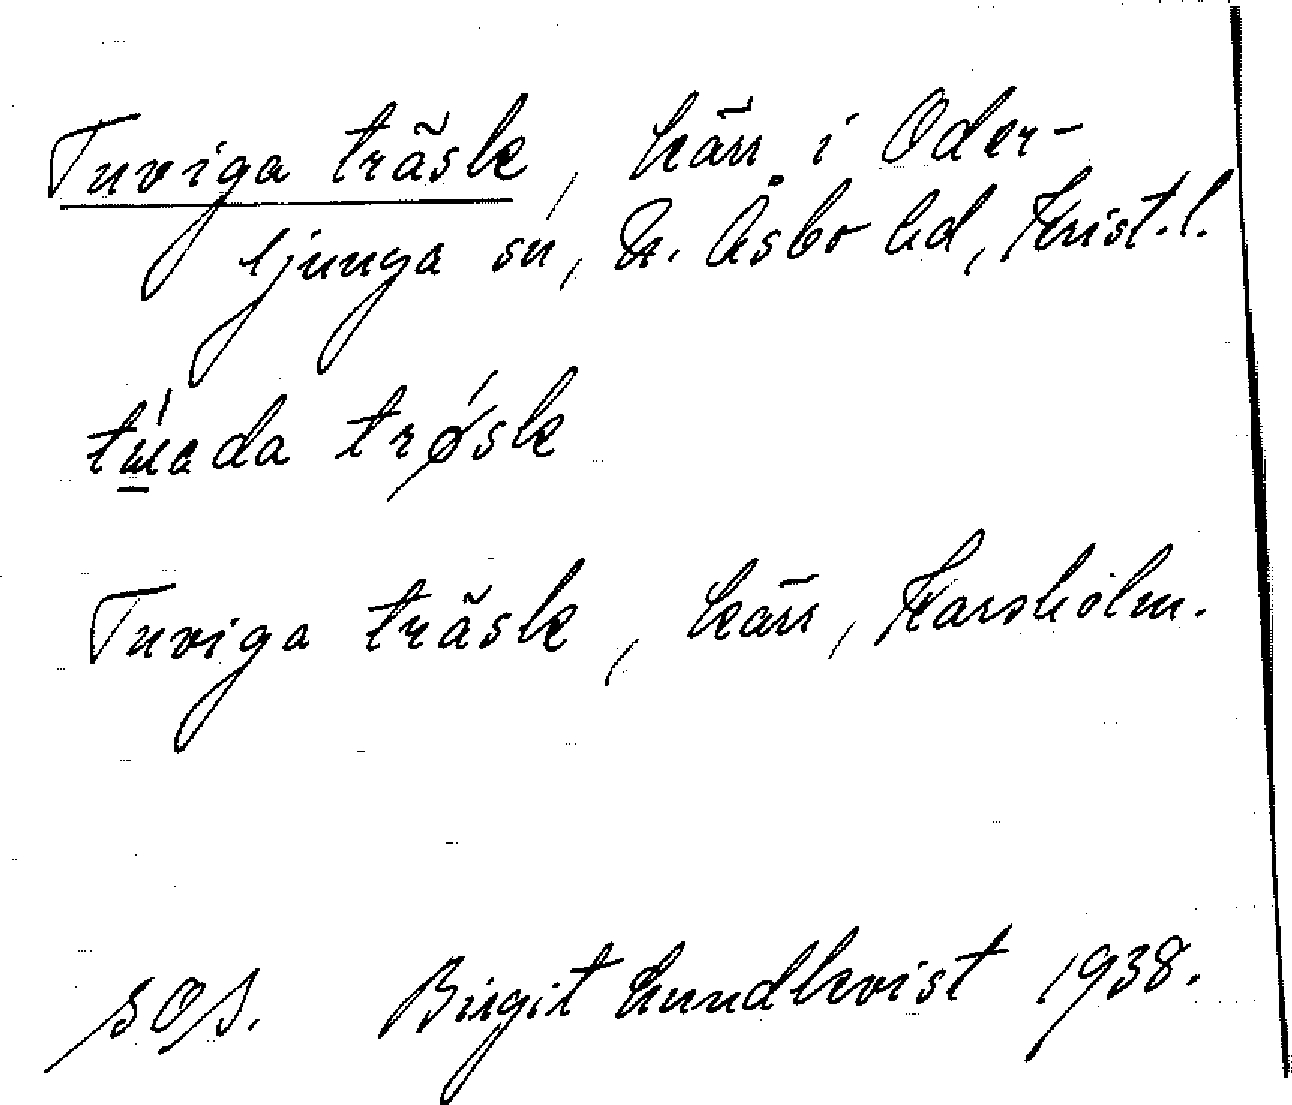 Tuviga träsk, kärr i Oder-
ljunga sn, N. Åsbo hd, Krist.l.
träsk
Tuviga träsk, kärr, Karsholm.
SOS. Birgit Lundkvist 1938.